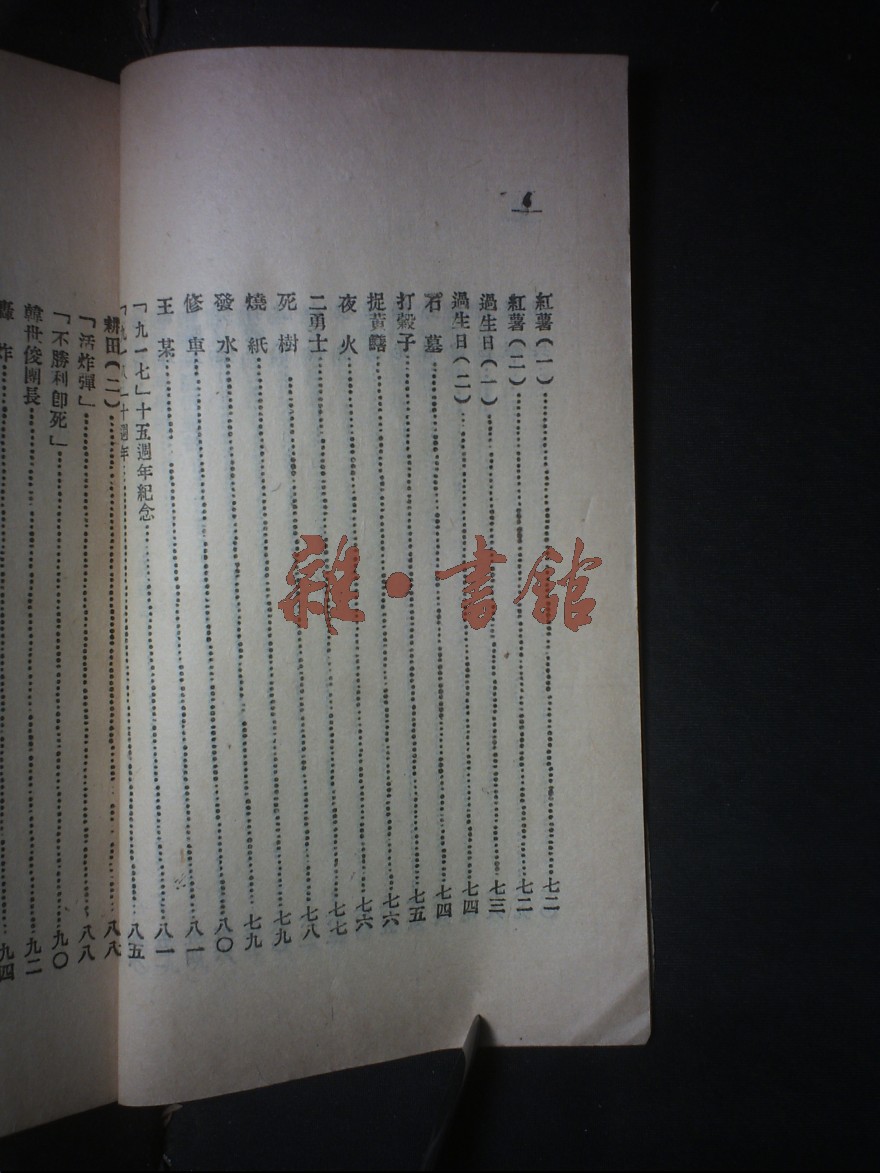 6
紅薯(一)……七二
紅薯(二)……七二
過生日(一)……七三
過生日(二)……七四
石墓……七四
打穀子……七五
捉黃鱔……七六
夜火……七六
二勇士……七七
死樹……七八
燒紙……七九
發水……七九
修車……八〇
王某……八一
「九一七」十五週年紀念……八一
「九一八」十週年……八五
耕田(二)……八八
「活炸彈」……八八
「不勝利卽死」……九〇
韓世俊團長……九二
轟炸……九四
雜·書館